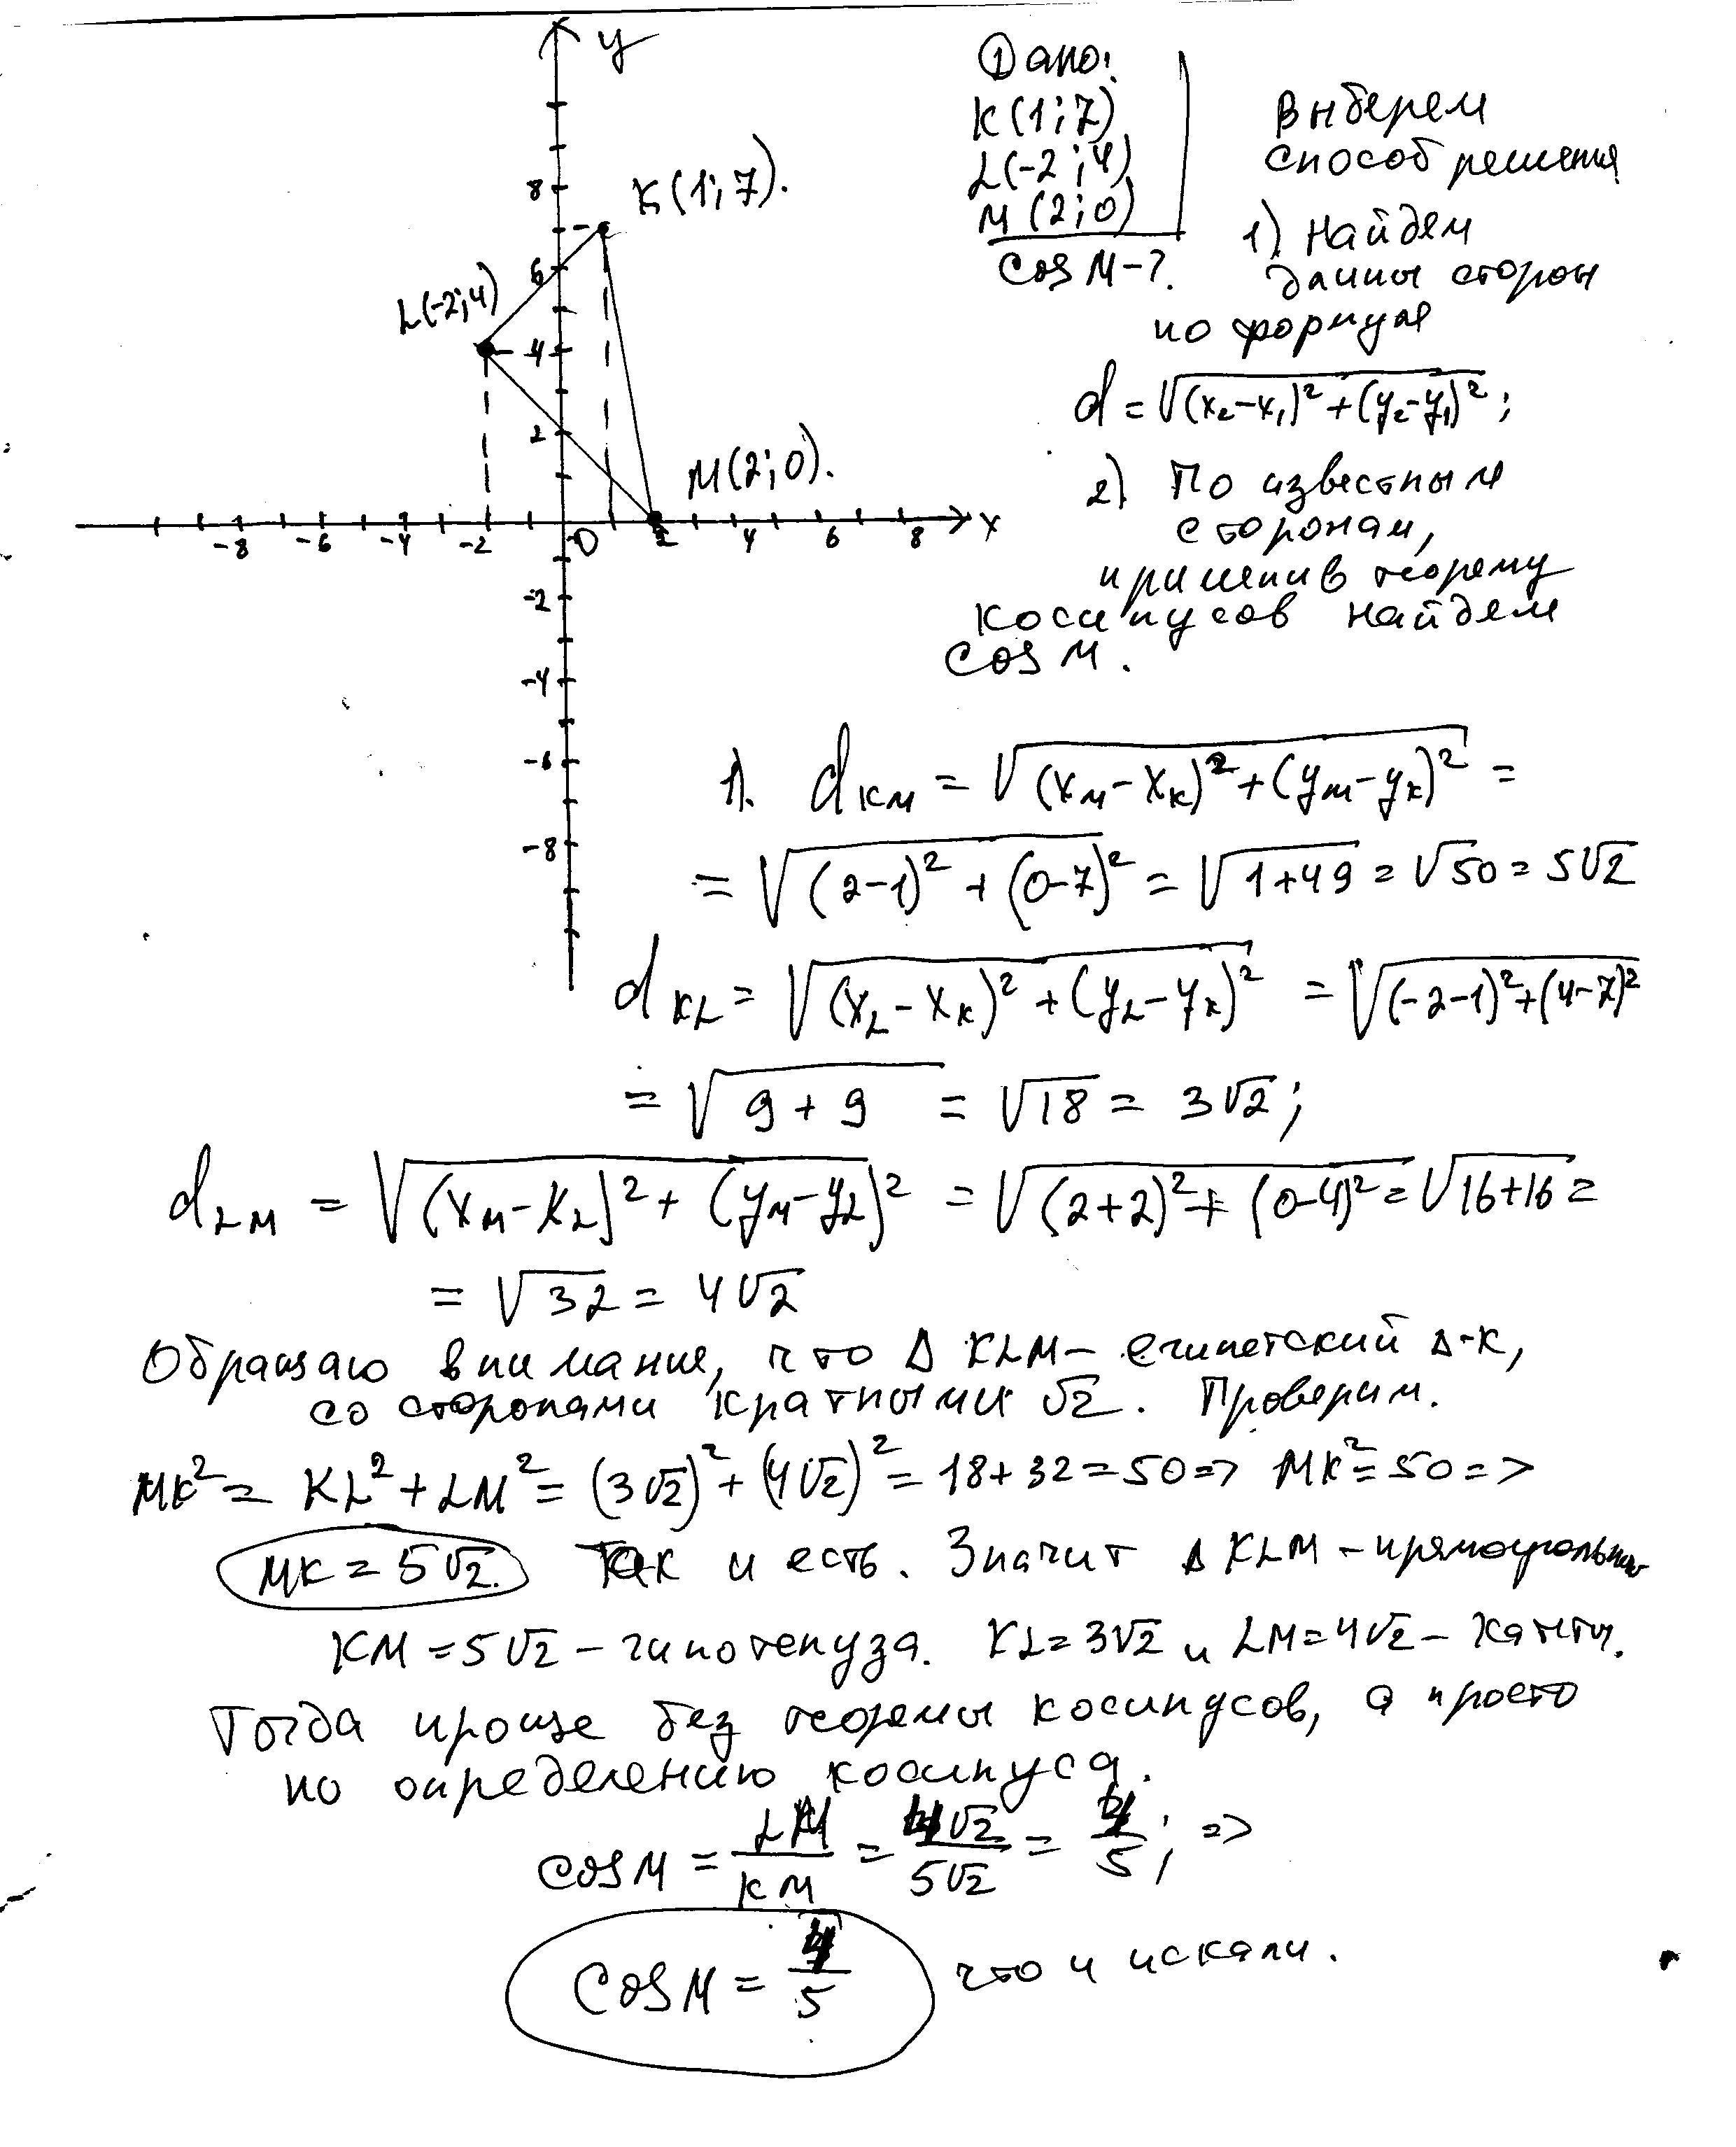 y
8
K(1;7).
6
L(-2;4)
4
2
M(2;0).
-8 -6 -4 -2 0 2 4 6 8 x
-2
-4
-6
-8
Дано:
K(1;7)
L(-2;4)
M(2;0)
cos M-?
Выберем
способ решения
1) Найдем
длины сторон
по формуле
d=√(x₂-x₁)²+(y₂-y₁)²;
2) По известным
сторонам,
применив теорему
косинусов найдем
cos M.
1). d KM = √(xM-xK)²+(yM-yK)² =
= √(2-1)²+(0-7)² = √1+49 = √50 = 5√2
d KL = √(xL-xK)²+(yL-yK)² = √(-2-1)²+(4-7)²
= √9+9 = √18 = 3√2;
d LM = √(xM-xL)²+(yM-yL)² = √(2+2)²+(0-4)² = √16+16 =
= √32 = 4√2
Обращаю внимание, что Δ KLM - египетский Δ-к,
со сторонами кратными √2. Проверим.
MK² = KL²+LM² = (3√2)²+(4√2)² = 18+32=50 => MK²=50 =>
MK = 5√2. Так и есть. Значит Δ KLM - прямоугольн
KM = 5√2 - гипотенуза. KL=3√2 и LM=4√2 - катеты.
Тогда проще без теоремы косинусов, а просто
по определению косинуса.
cos M = LM/KM = 4√2/5√2 = 4/5; =>
cos M = 4/5 что и искали.